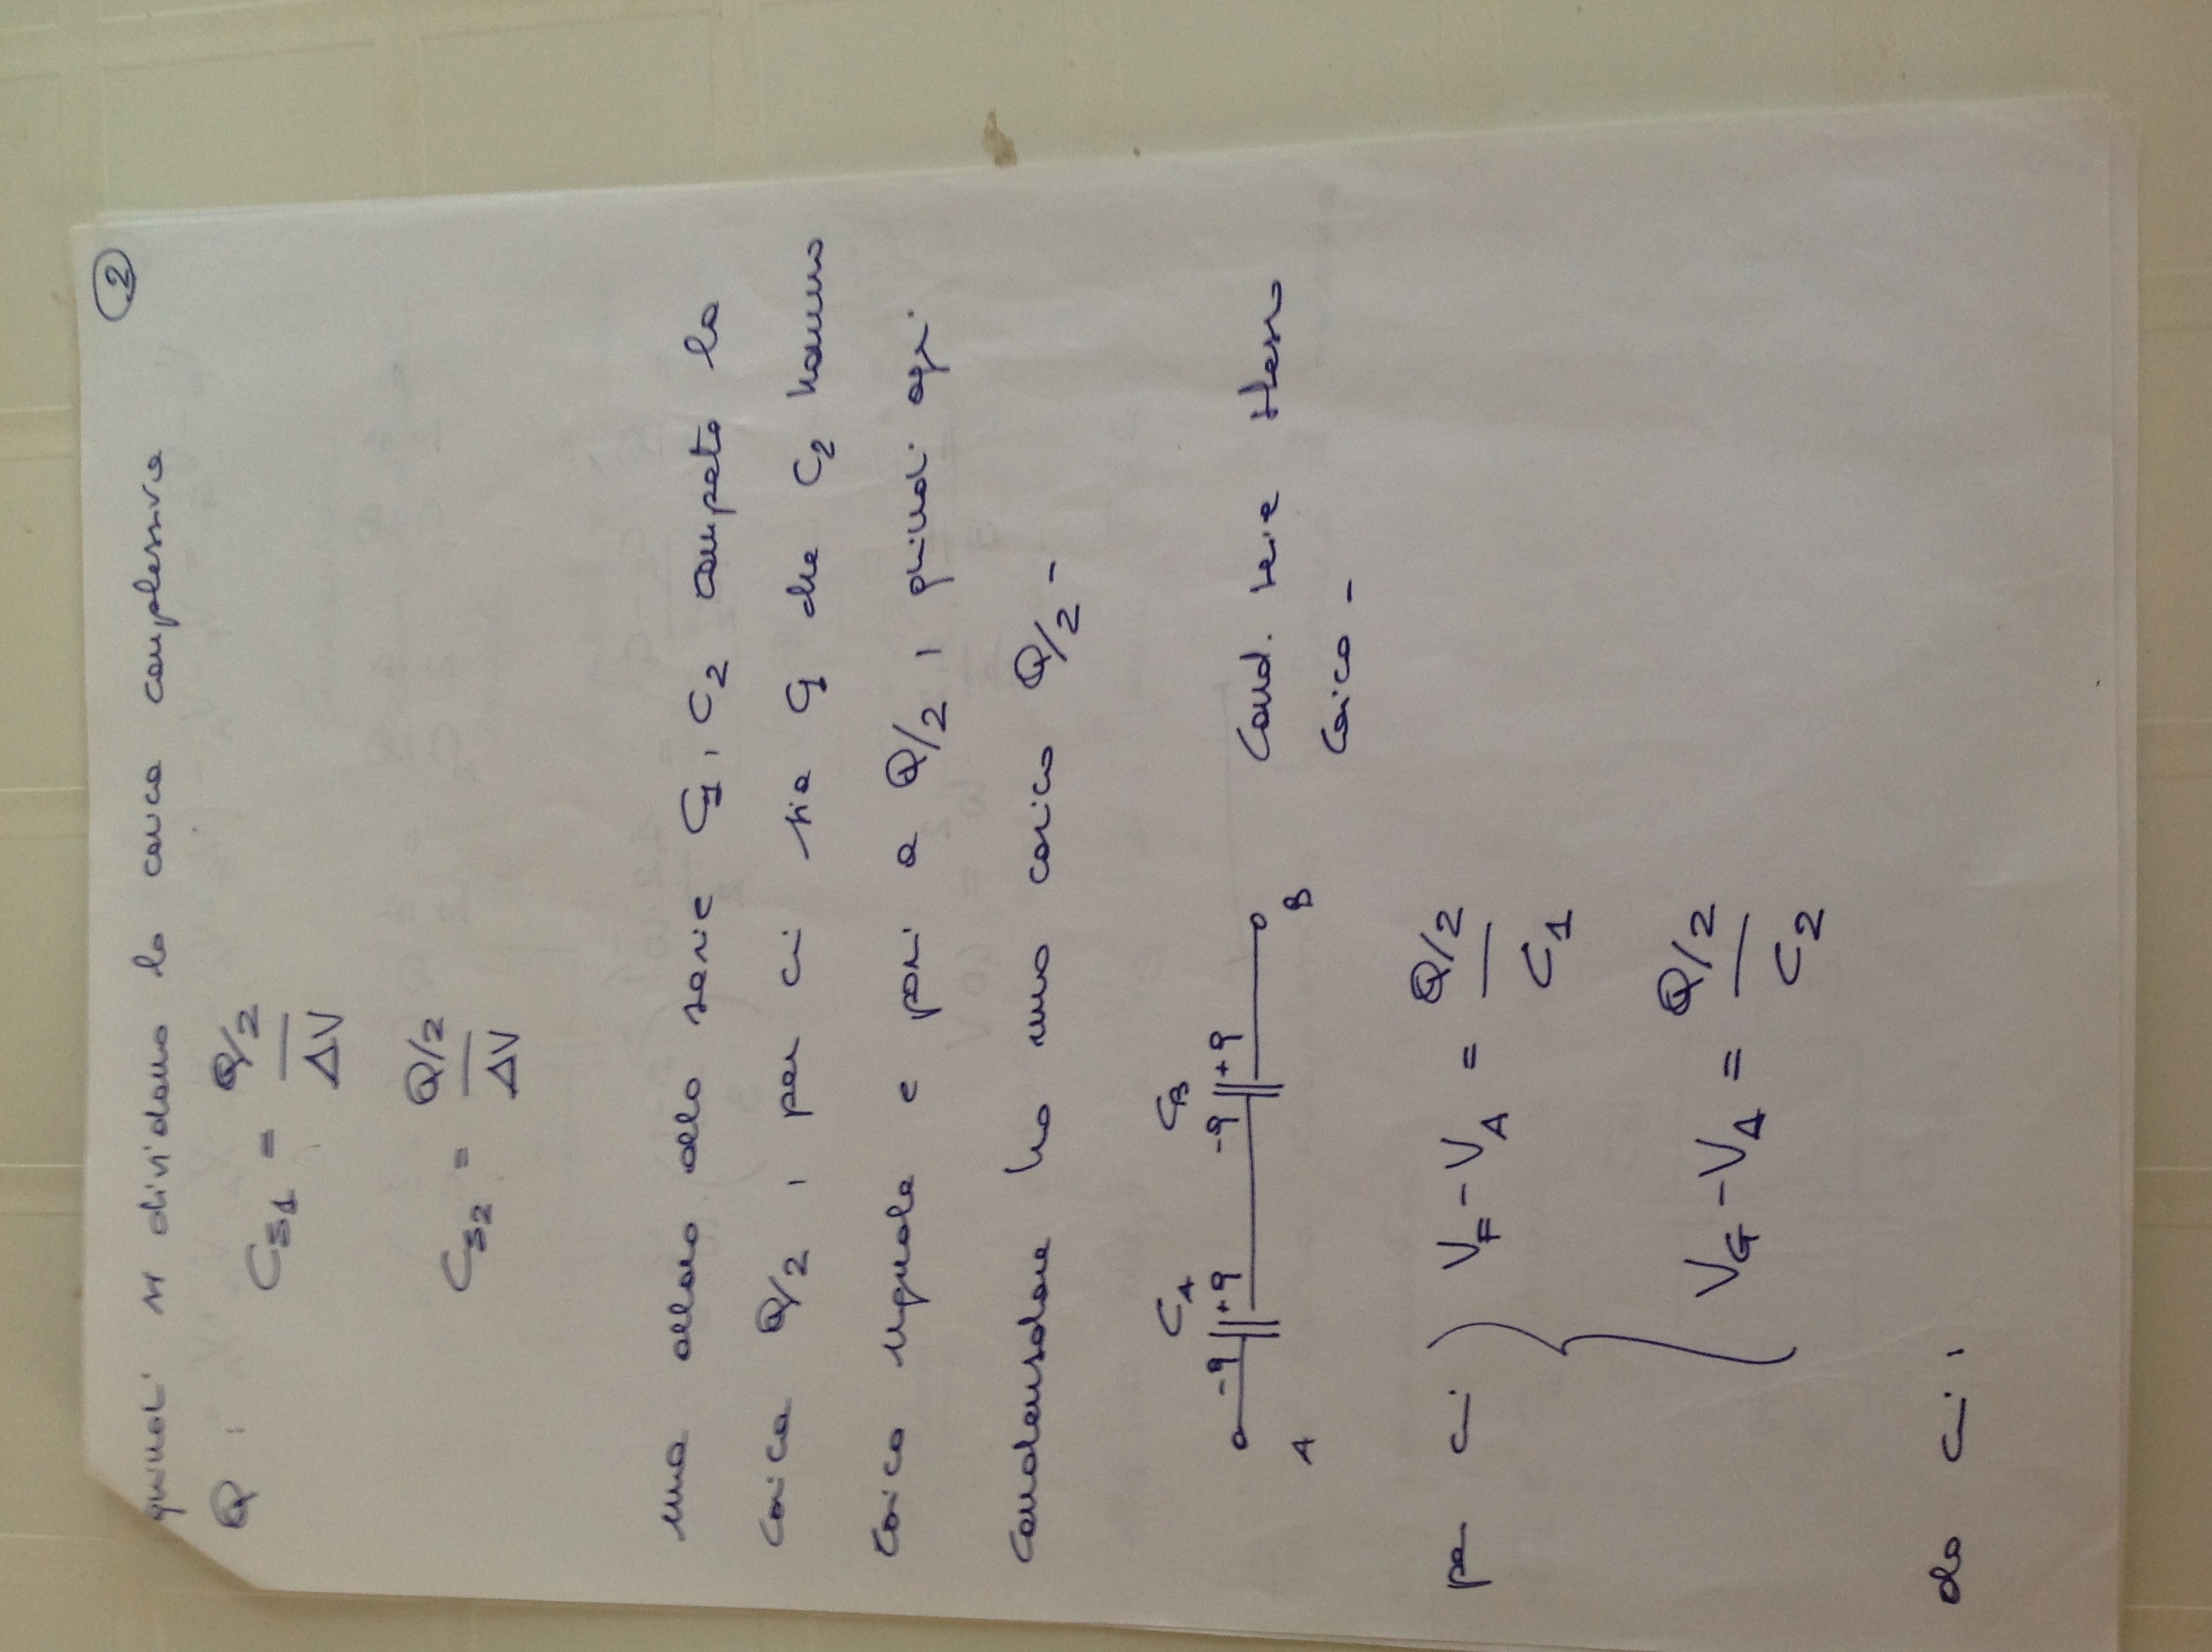 2
quindi si dividono la carica complessiva
Q :
C_S1 = Q/2 / ΔV
C_S2 = Q/2 / ΔV
ma allora alla serie C1, C2 compete la
carica Q/2, per cui sia C1 che C2 hanno
carica uguale e pari a Q/2, quindi ogni
condensatore ha una carica Q/2 -
C_A C_B
-q +q -q +q
A B
Cond. serie stessa
carica -
per cui { V_F - V_A = Q/2 / C_1
V_G - V_A = Q/2 / C_2
da cui :